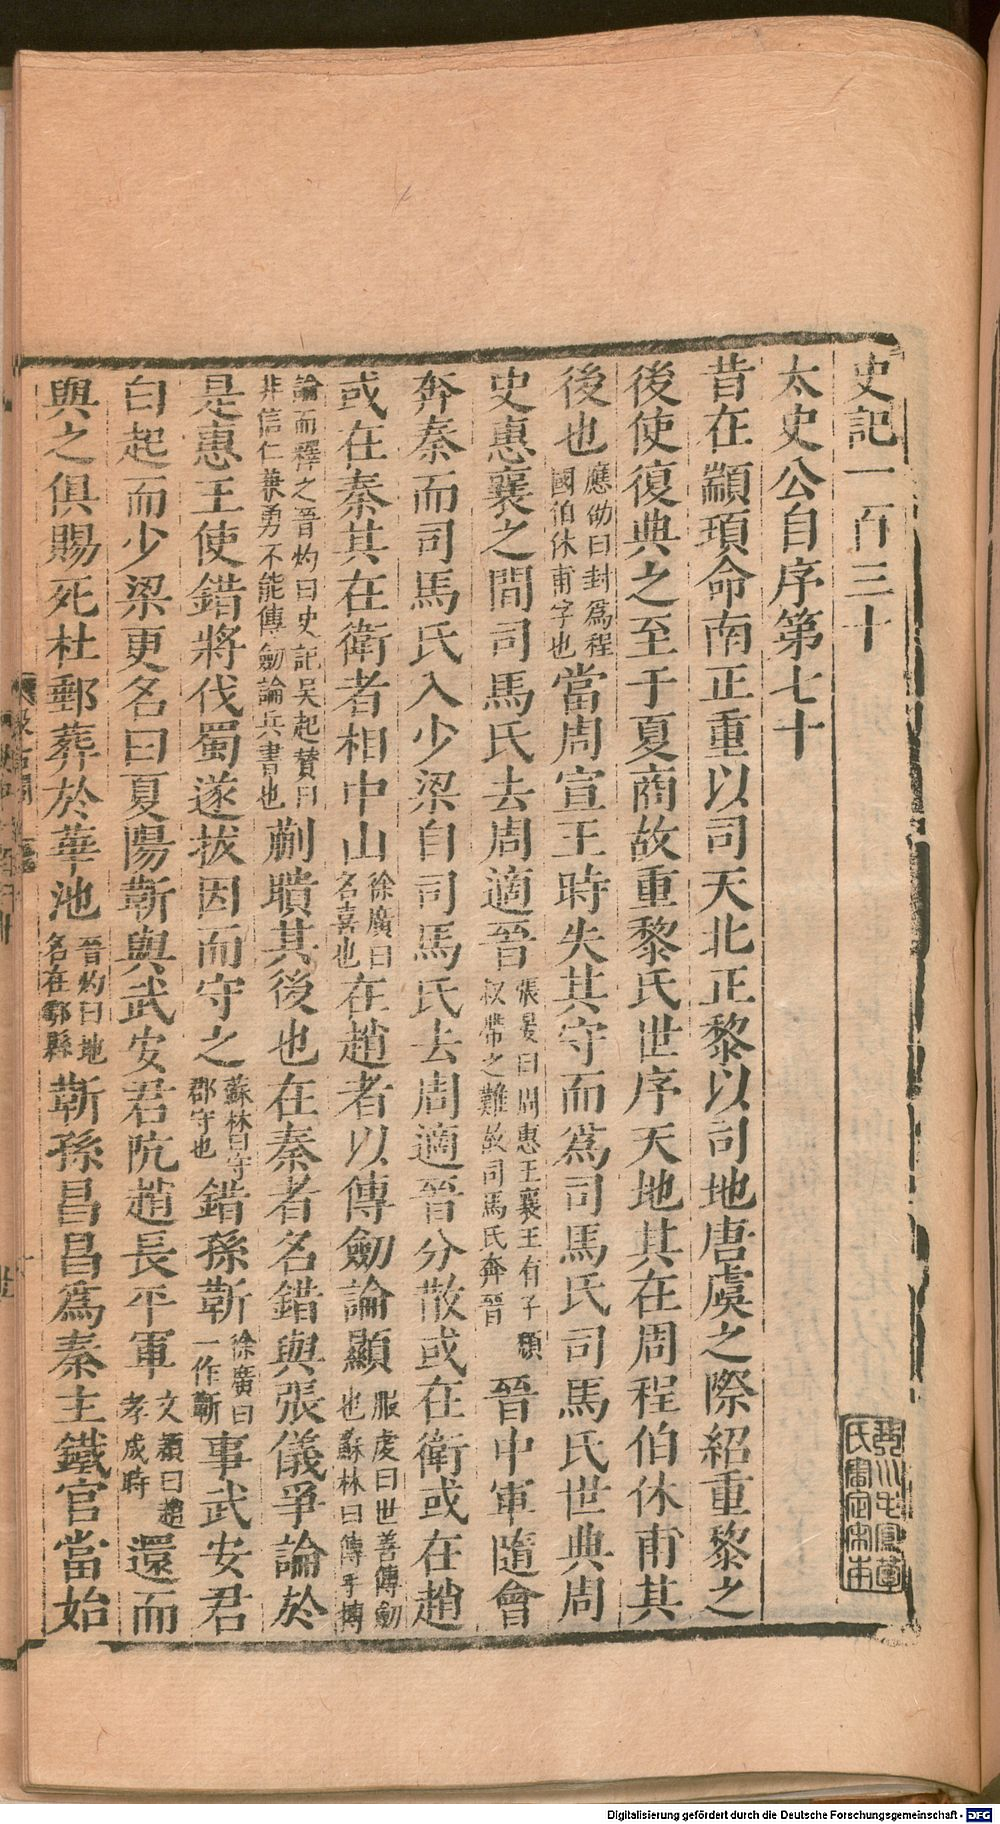 史記一百三十
太史公自序第七十
昔在顓頊命南正重以司天北正黎以司地唐虞之際紹重黎之
後使復典之至于夏商故重黎氏世序天地其在周程伯休甫其
後也應劭曰封爲程國伯休甫字也當周宣王時失其守而爲司馬氏司馬氏世典周
史惠襄之間司馬氏去周適晉張晏曰周惠王襄王有子頹叔帶之難故司馬氏奔晉晉中軍隨會
奔秦而司馬氏入少梁自司馬氏去周適晉分散或在衛或在趙
或在秦其在衛者相中山徐廣曰名喜也在趙者以傳劒論顯服虔曰世善傳劒也蘇林曰傳手搏
論而釋之晉灼曰史記吳起贊曰非信仁兼勇不能傳劒論兵書也蒯聵其後也在秦者名錯與張儀爭論於
是惠王使錯將伐蜀遂拔因而守之蘇林曰守郡守也錯孫蘄徐廣曰一作靳事武安君
白起而少梁更名曰夏陽蘄與武安君阬趙長平軍文穎曰趙孝成時還而
與之俱賜死杜郵葬於華池晉灼曰地名在鄠縣蘄孫昌昌爲秦主鐵官當始
Digitalisierung gefördert durch die Deutsche Forschungsgemeinschaft - DFG